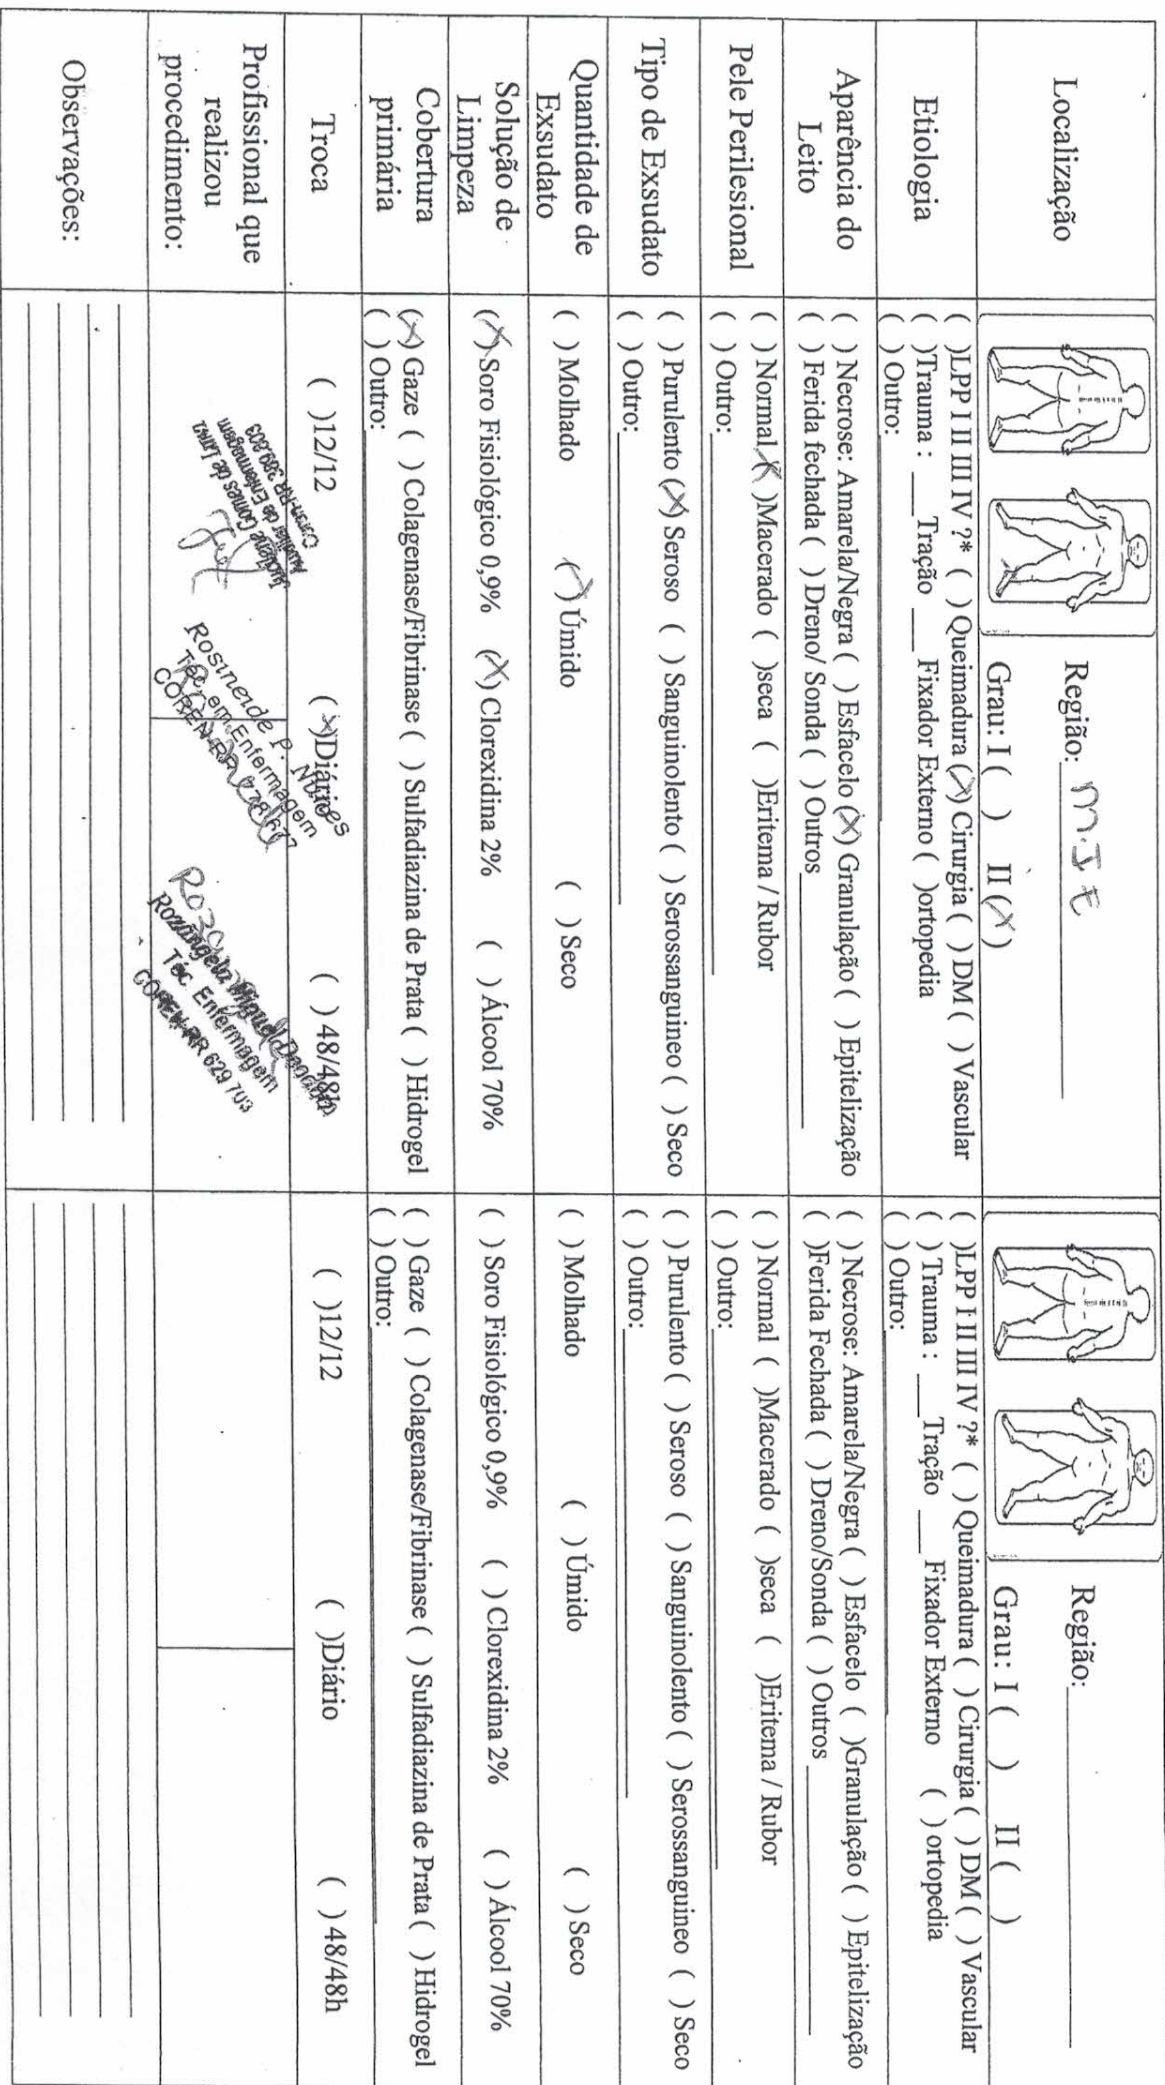 Localização
Região: M.I E
Grau: I ( ) II (X)
Região:
Grau: I ( ) II ( )
Etiologia
( )LPP I II III IV ?* ( ) Queimadura (X) Cirurgia ( ) DM ( ) Vascular
( )Trauma : ___Tração ___ Fixador Externo ( )ortopedia
( ) Outro:
( )LPP I II III IV ?* ( ) Queimadura ( ) Cirurgia ( ) DM ( ) Vascular
( ) Trauma : ___Tração ___ Fixador Externo ( ) ortopedia
( ) Outro:
Aparência do
Leito
( ) Necrose: Amarela/Negra ( ) Esfacelo (X) Granulação ( ) Epitelização
( ) Ferida fechada ( ) Dreno/ Sonda ( ) Outros
( ) Necrose: Amarela/Negra ( ) Esfacelo ( )Granulação ( ) Epitelização
( )Ferida Fechada ( ) Dreno/Sonda ( ) Outros
Pele Perilesional
( ) Normal (X )Macerado ( )seca ( )Eritema / Rubor
( ) Outro:
( ) Normal ( )Macerado ( )seca ( )Eritema / Rubor
( ) Outro:
Tipo de Exsudato
( ) Purulento (X) Seroso ( ) Sanguinolento ( ) Serossanguineo ( ) Seco
( ) Outro:
( ) Purulento ( ) Seroso ( ) Sanguinolento ( ) Serossanguineo ( ) Seco
( ) Outro:
Quantidade de
Exsudato
( ) Molhado (X) Úmido ( ) Seco
( ) Molhado ( ) Úmido ( ) Seco
Solução de
Limpeza
(X) Soro Fisiológico 0,9% (X) Clorexidina 2% ( ) Álcool 70%
( ) Soro Fisiológico 0,9% ( ) Clorexidina 2% ( ) Álcool 70%
Cobertura
primária
(X) Gaze ( ) Colagenase/Fibrinase ( ) Sulfadiazina de Prata ( ) Hidrogel
( ) Outro:
( ) Gaze ( ) Colagenase/Fibrinase ( ) Sulfadiazina de Prata ( ) Hidrogel
( ) Outro:
Troca
( )12/12 (X)Diário ( ) 48/48h
( )12/12 ( )Diário ( ) 48/48h
Profissional que
realizou
procedimento:
Gomes de Lima
Auxiliar de Enfermagem
Coren-RR 389.803
Rosineide P. Nunes
Téc. em Enfermagem
COREN-RR
Rozângela Miguel
Téc. Enfermagem
COREN-RR 629 703
Observações: